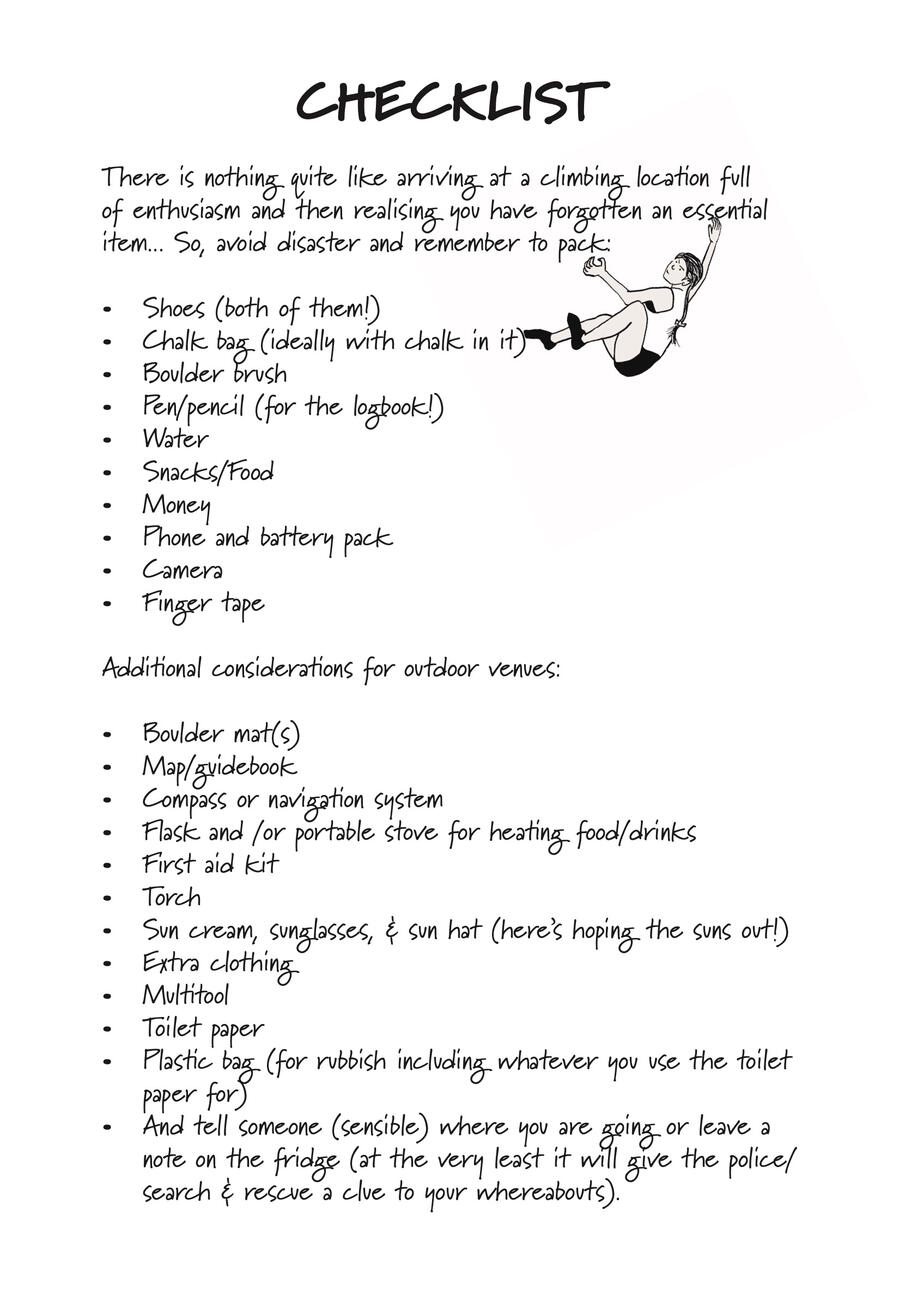 CHECKLIST
There is nothing quite like arriving at a climbing location full
of enthusiasm and then realising you have forgotten an essential
item... So, avoid disaster and remember to pack:
• Shoes (both of them!)
• Chalk bag (ideally with chalk in it)
• Boulder brush
• Pen/pencil (for the logbook!)
• Water
• Snacks/Food
• Money
• Phone and battery pack
• Camera
• Finger tape
Additional considerations for outdoor venues:
• Boulder mat(s)
• Map/guidebook
• Compass or navigation system
• Flask and /or portable stove for heating food/drinks
• First aid kit
• Torch
• Sun cream, sunglasses, & sun hat (here's hoping the suns out!)
• Extra clothing
• Multitool
• Toilet paper
• Plastic bag (for rubbish including whatever you use the toilet
paper for)
• And tell someone (sensible) where you are going or leave a
note on the fridge (at the very least it will give the police/
search & rescue a clue to your whereabouts).